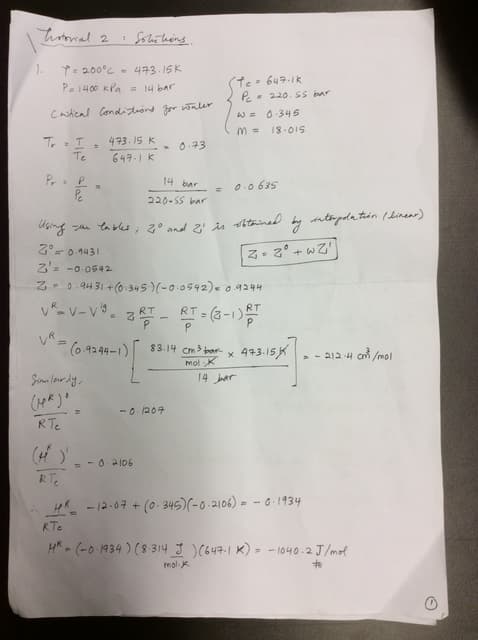 Tutorial 2 : Solutions.
1. T = 200°C = 473.15K
P = 1400 kPa = 14 bar
Critical Conditions for water
Tc = 647.1K
Pc = 220.55 bar
ω = 0.345
M = 18.015
Tr = T/Tc = 473.15 K / 647.1 K = 0.73
Pr = P/Pc = 14 bar / 220.55 bar = 0.0635
Using tables, Z⁰ and Z¹ is obtained by interpolation (linear)
Z⁰ = 0.9431
Z = Z⁰ + ωZ¹
Z¹ = -0.0542
Z = 0.9431 + (0.345)(-0.0542) = 0.9244
V^R = V - V^ig = Z RT/P - RT/P = (Z-1) RT/P
V^R = (0.9244-1) [ 83.14 cm³ bar / mol.K × 473.15K / 14 bar ] = -212.4 cm³/mol
Similarly,
(H^R)⁰ / RTc = -0.1207
(H^R)¹ / RTc = -0.2106
∴ H^R / RTc = -12.07 + (0.345)(-0.2106) = -0.1934
H^R = (-0.1934)(8.314 J / mol.K)(647.1 K) = -1040.2 J/mol
1